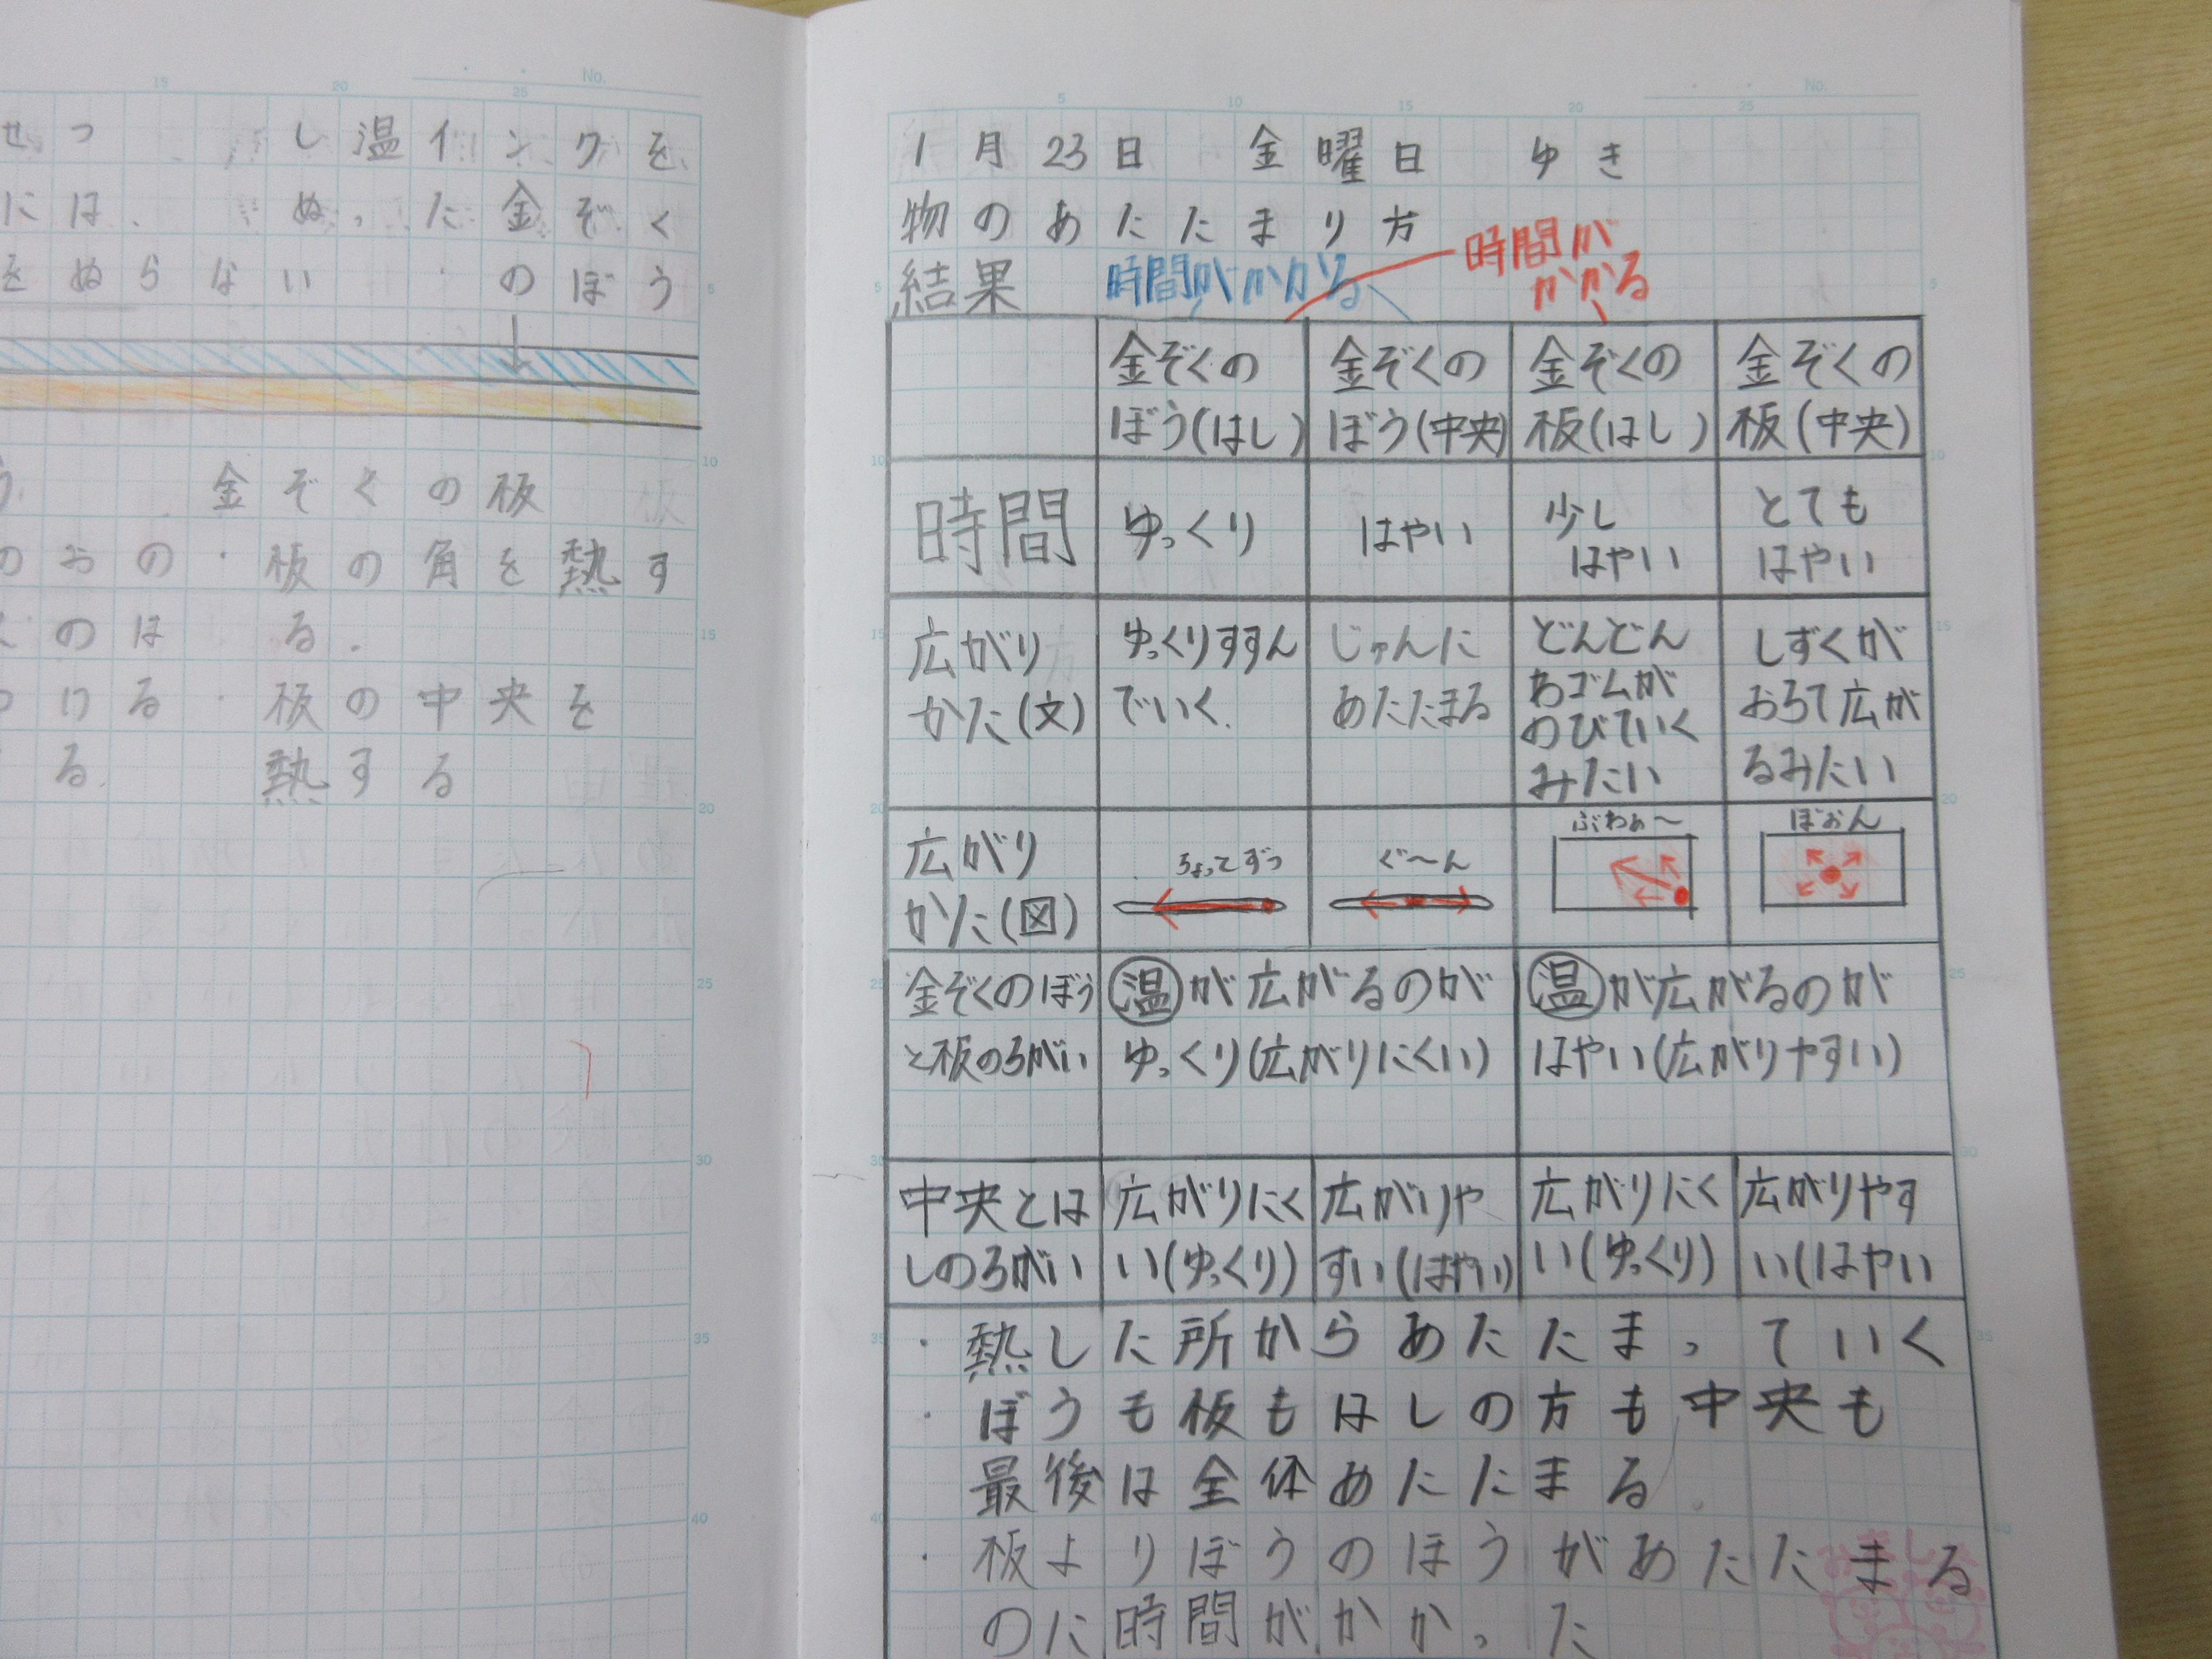 せつ し温インクを
には、 ぬった金ぞく
をぬらない のぼう
金ぞくの板
のおの・板の角を熱す
のほ る.
ける・板の中央を
る. 熱する
No.
1月23日 金曜日 ゆき
物のあたたまり方
結果 時間がかかる 時間が
かかる
金ぞくの 金ぞくの 金ぞくの 金ぞくの
ぼう(はし) ぼう(中央) 板(はし) 板(中央)
時間 ゆっくり はやい 少し とても
はやい はやい
広がり ゆっくりすすん じゅんに どんどん しずくが
かた(文) でいく. あたたまる わゴムが おちて広が
のびていく るみたい
みたい
広がり ちょってずつ ぐ〜ん ぶわぁ〜 ぼぉん
かた(図)
金ぞくのぼう 温が広がるのが 温が広がるのが
と板のちがい ゆっくり(広がりにくい) はやい(広がりやすい)
中央とは 広がりにく 広がりや 広がりにく 広がりやす
しのちがい い(ゆっくり) すい(はやい) い(ゆっくり) い(はやい
・熱した所からあたたまっていく
・ぼうも板もはしの方も中央も
最後は全体あたたまる.
・板よりぼうのほうがあたたまる
のに時間がかかった